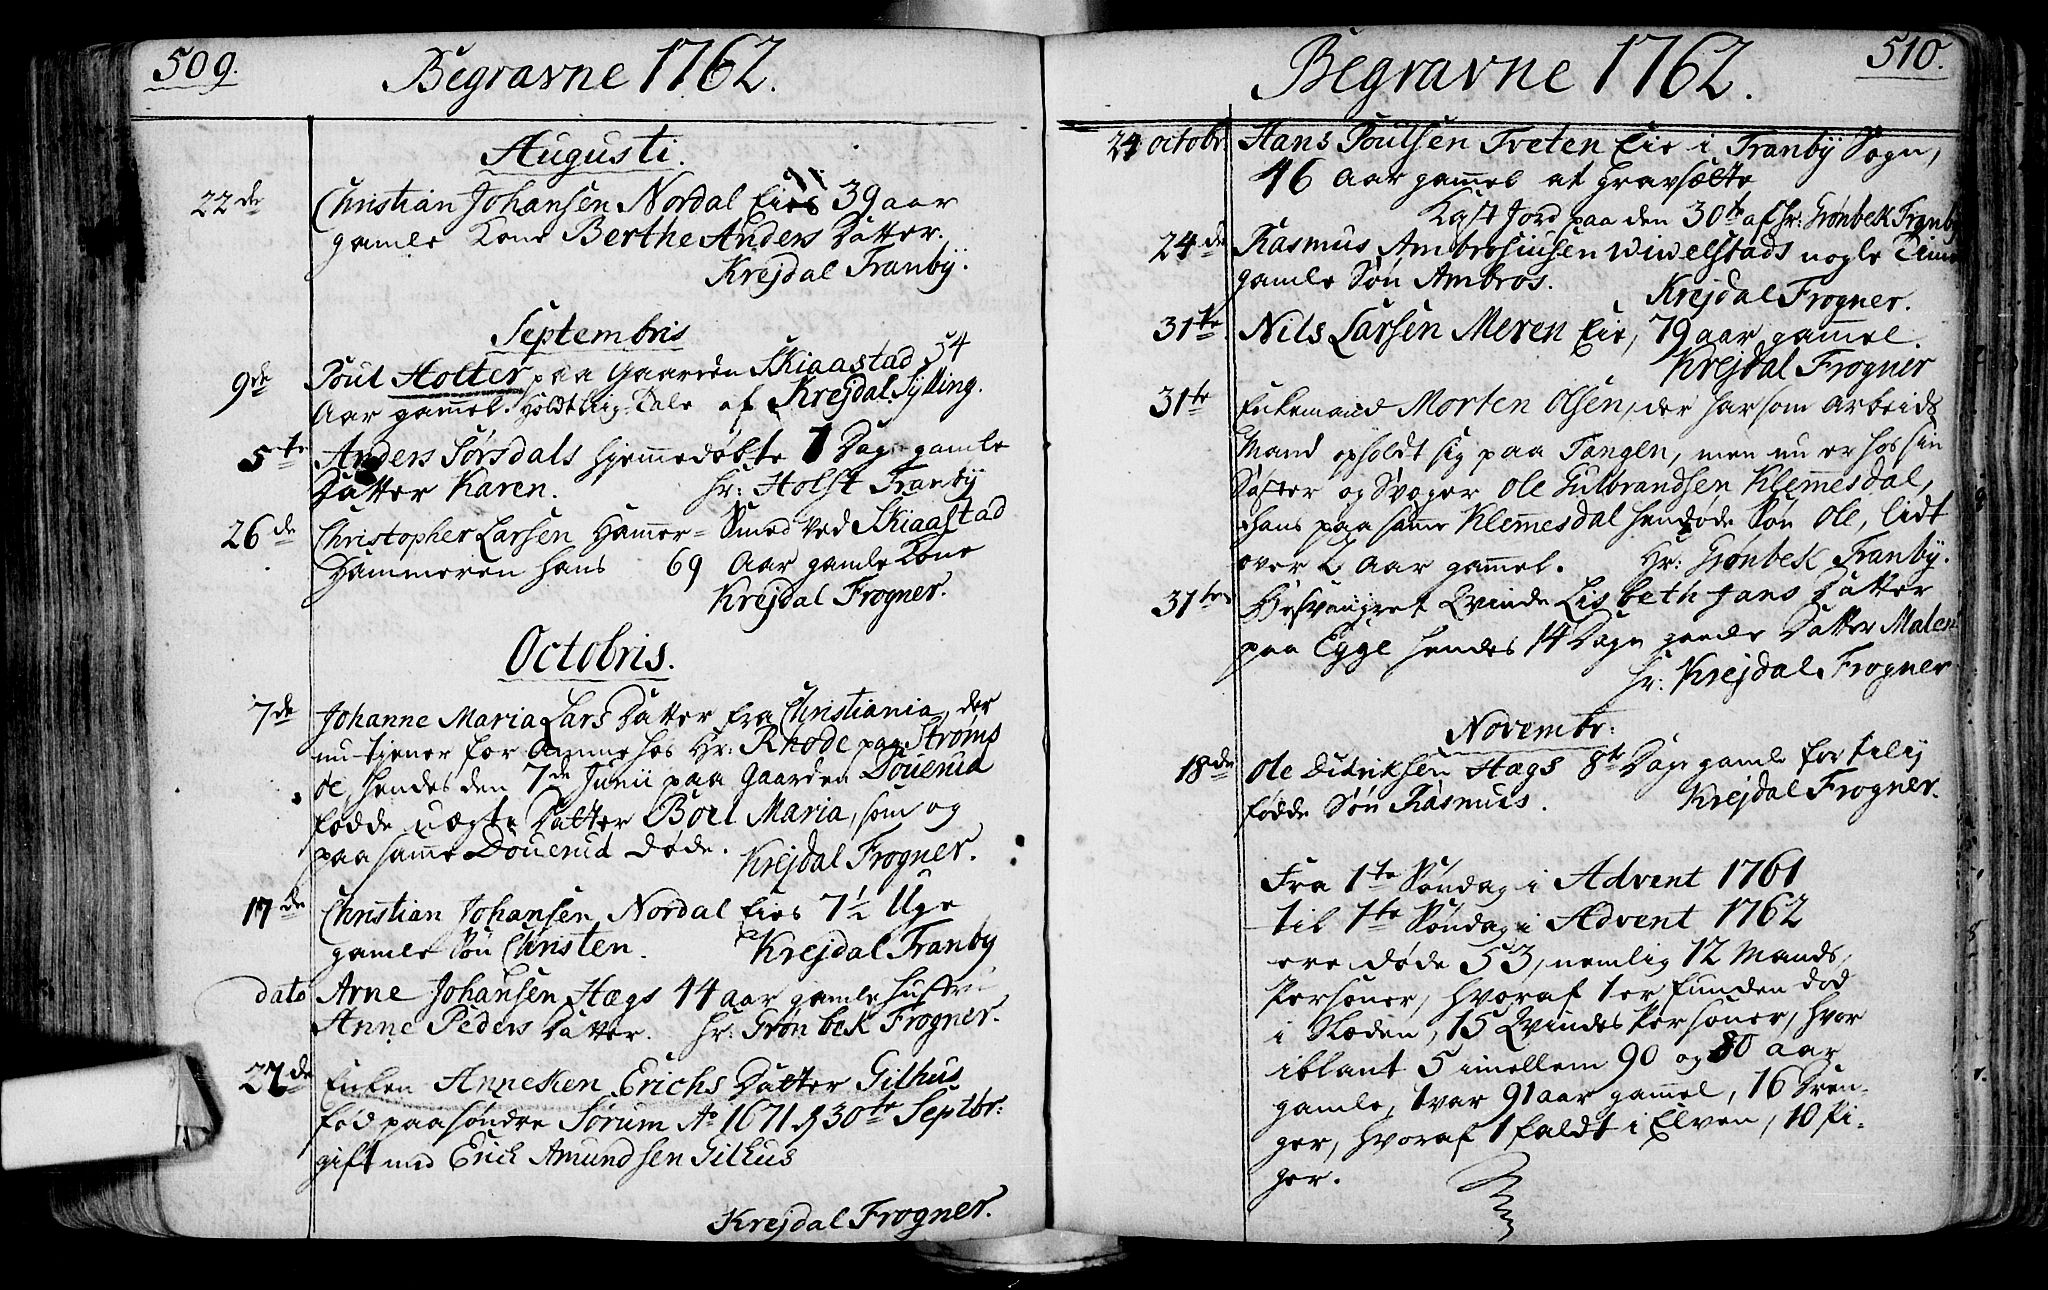 509.
Begravne 1762.
Augusti.
22de Christian Johansen Nordal Eies 39 aar
gamle Kone Berthe Anders Datter.
Krejdal Franby.
Septembris
9de Poul Holter paa Gaarden Skiaastad 54
Aar gammel. Holdt Lig-Tale af Krejdal Sylling.
5te Anders Sørsdals hjemmedøbte 1 Dag gamle
Datter Karen. Hr: Holst Franby
26de Christopher Larsen Hammer-Smed ved Skiaastad
Hammeren hans 69 Aar gamle Kone
Krejdal Frogner.
Octobris.
7de Johanne Maria Lars Datter fra Christiania, der
nu tjener for Amme hos Hr: Rhode paa Strøms
øe, hendes den 7de Junii paa Gaarden Døuerud
fødde uægte Datter Boel Maria, som og
paa samme Døuerud døde. Krejdal Frogner.
17de Christian Johansen Nordal Eies 7½ Uge
gamle Søn Christen. Krejdal Franby
dato Arne Johansen Hægs 44 aar gamle Hustru
Anne Peders Datter. Hr: Grønbek Frogner.
Enken Anneken Erichs Datter Gilhus
fød paa søndre Sørum Ao 1671 d 30te Septbr:
gift med Erich Amundsen Gilhus
Krejdal Frogner.
510.
Begravne 1762.
24 octobr Hans Poulsen Tveten Eie i Franby Sogn,
46 Aar gammel af Gravsælte
Kast Jord paa den 30te af Hr: Grønbek Franby
24de Rasmus Ambrosiusen Wiwelstads nogle Time
gamle Søn Ambros. Krejdal Frogner.
31te Nils Larsen Meren Eie, 79 aar gammel.
Krejdal Frogner
31te Enkemand Morten Olsen, der har som Arbeids
Mand opholdt sig paa Tangen, men nu er hos sin
Søster og Svoger Ole Gulbrandsen Klemmesdal,
hans paa samme Klemmesdal hendøde Søn Ole, lidt
over 2 Aar gammel. Hr: Grønbek Franby.
31te Besvangret Qvinde Lisbeth Jans Datter
paa Egge hendes 14 Dage gamle Datter Malen
Hr: Krejdal Frogner
Novembr:
18de Ole Didriksen Hægs 8te Dage gamle for tilig
fødde Søn Rasmus. Krejdal Frogner.
Fra 1te Søndag i Advent 1761
til 1te Søndag i Advent 1762
ere døde 53, nemlig 12 Mands
Personer, hvoraf 1 er funden død
i Slæden, 15 Qvindes Personer, hvor
iblant 5 imellem 90 og 80 aar
gamle, 1 var 91 aar gammel, 16 Dren-
ger, hvoraf 1 faldt i Elven, 10 Pi-
ger.